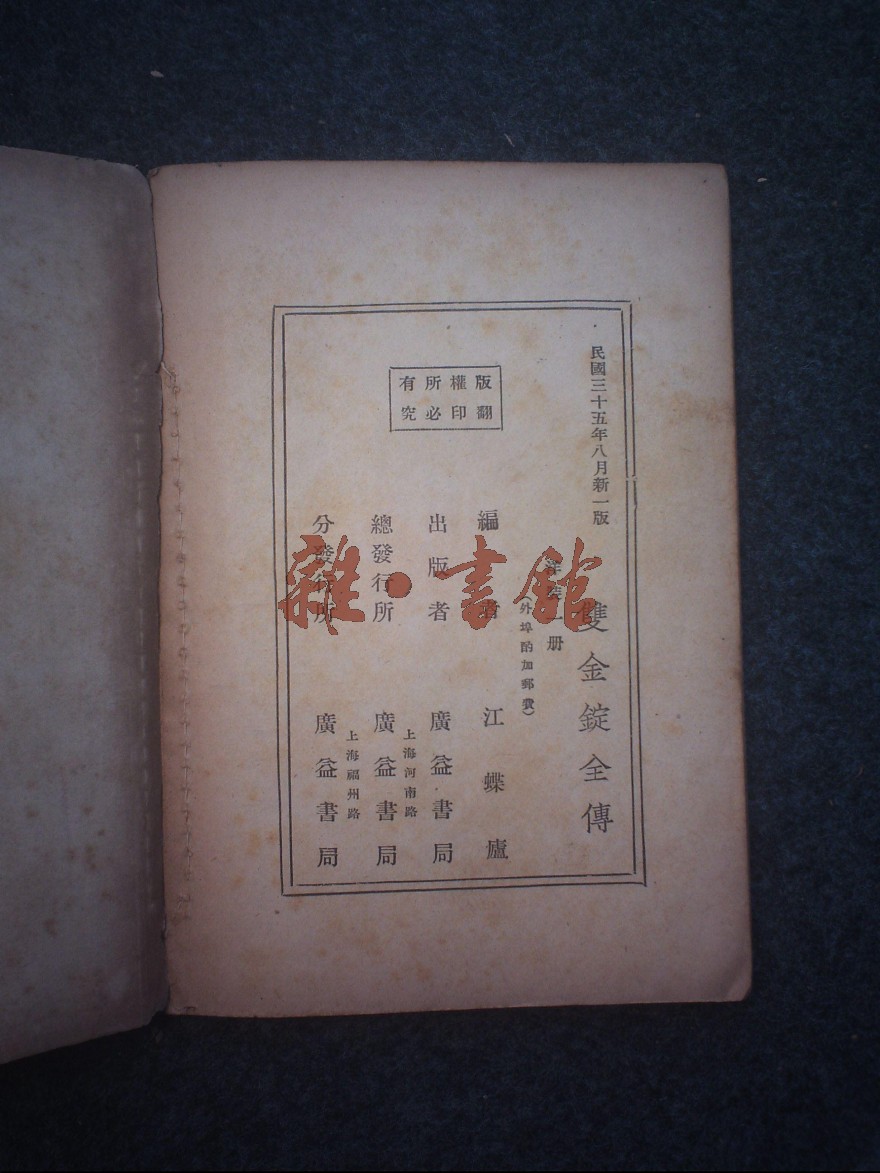 民國三十五年八月新一版
雙金錠全傳
一册
(外埠酌加郵費)
版權所有
翻印必究
編者 江蝶廬
出版者 廣益書局
上海河南路
總發行所 廣益書局
上海福州路
分發行所 廣益書局
雜·書館